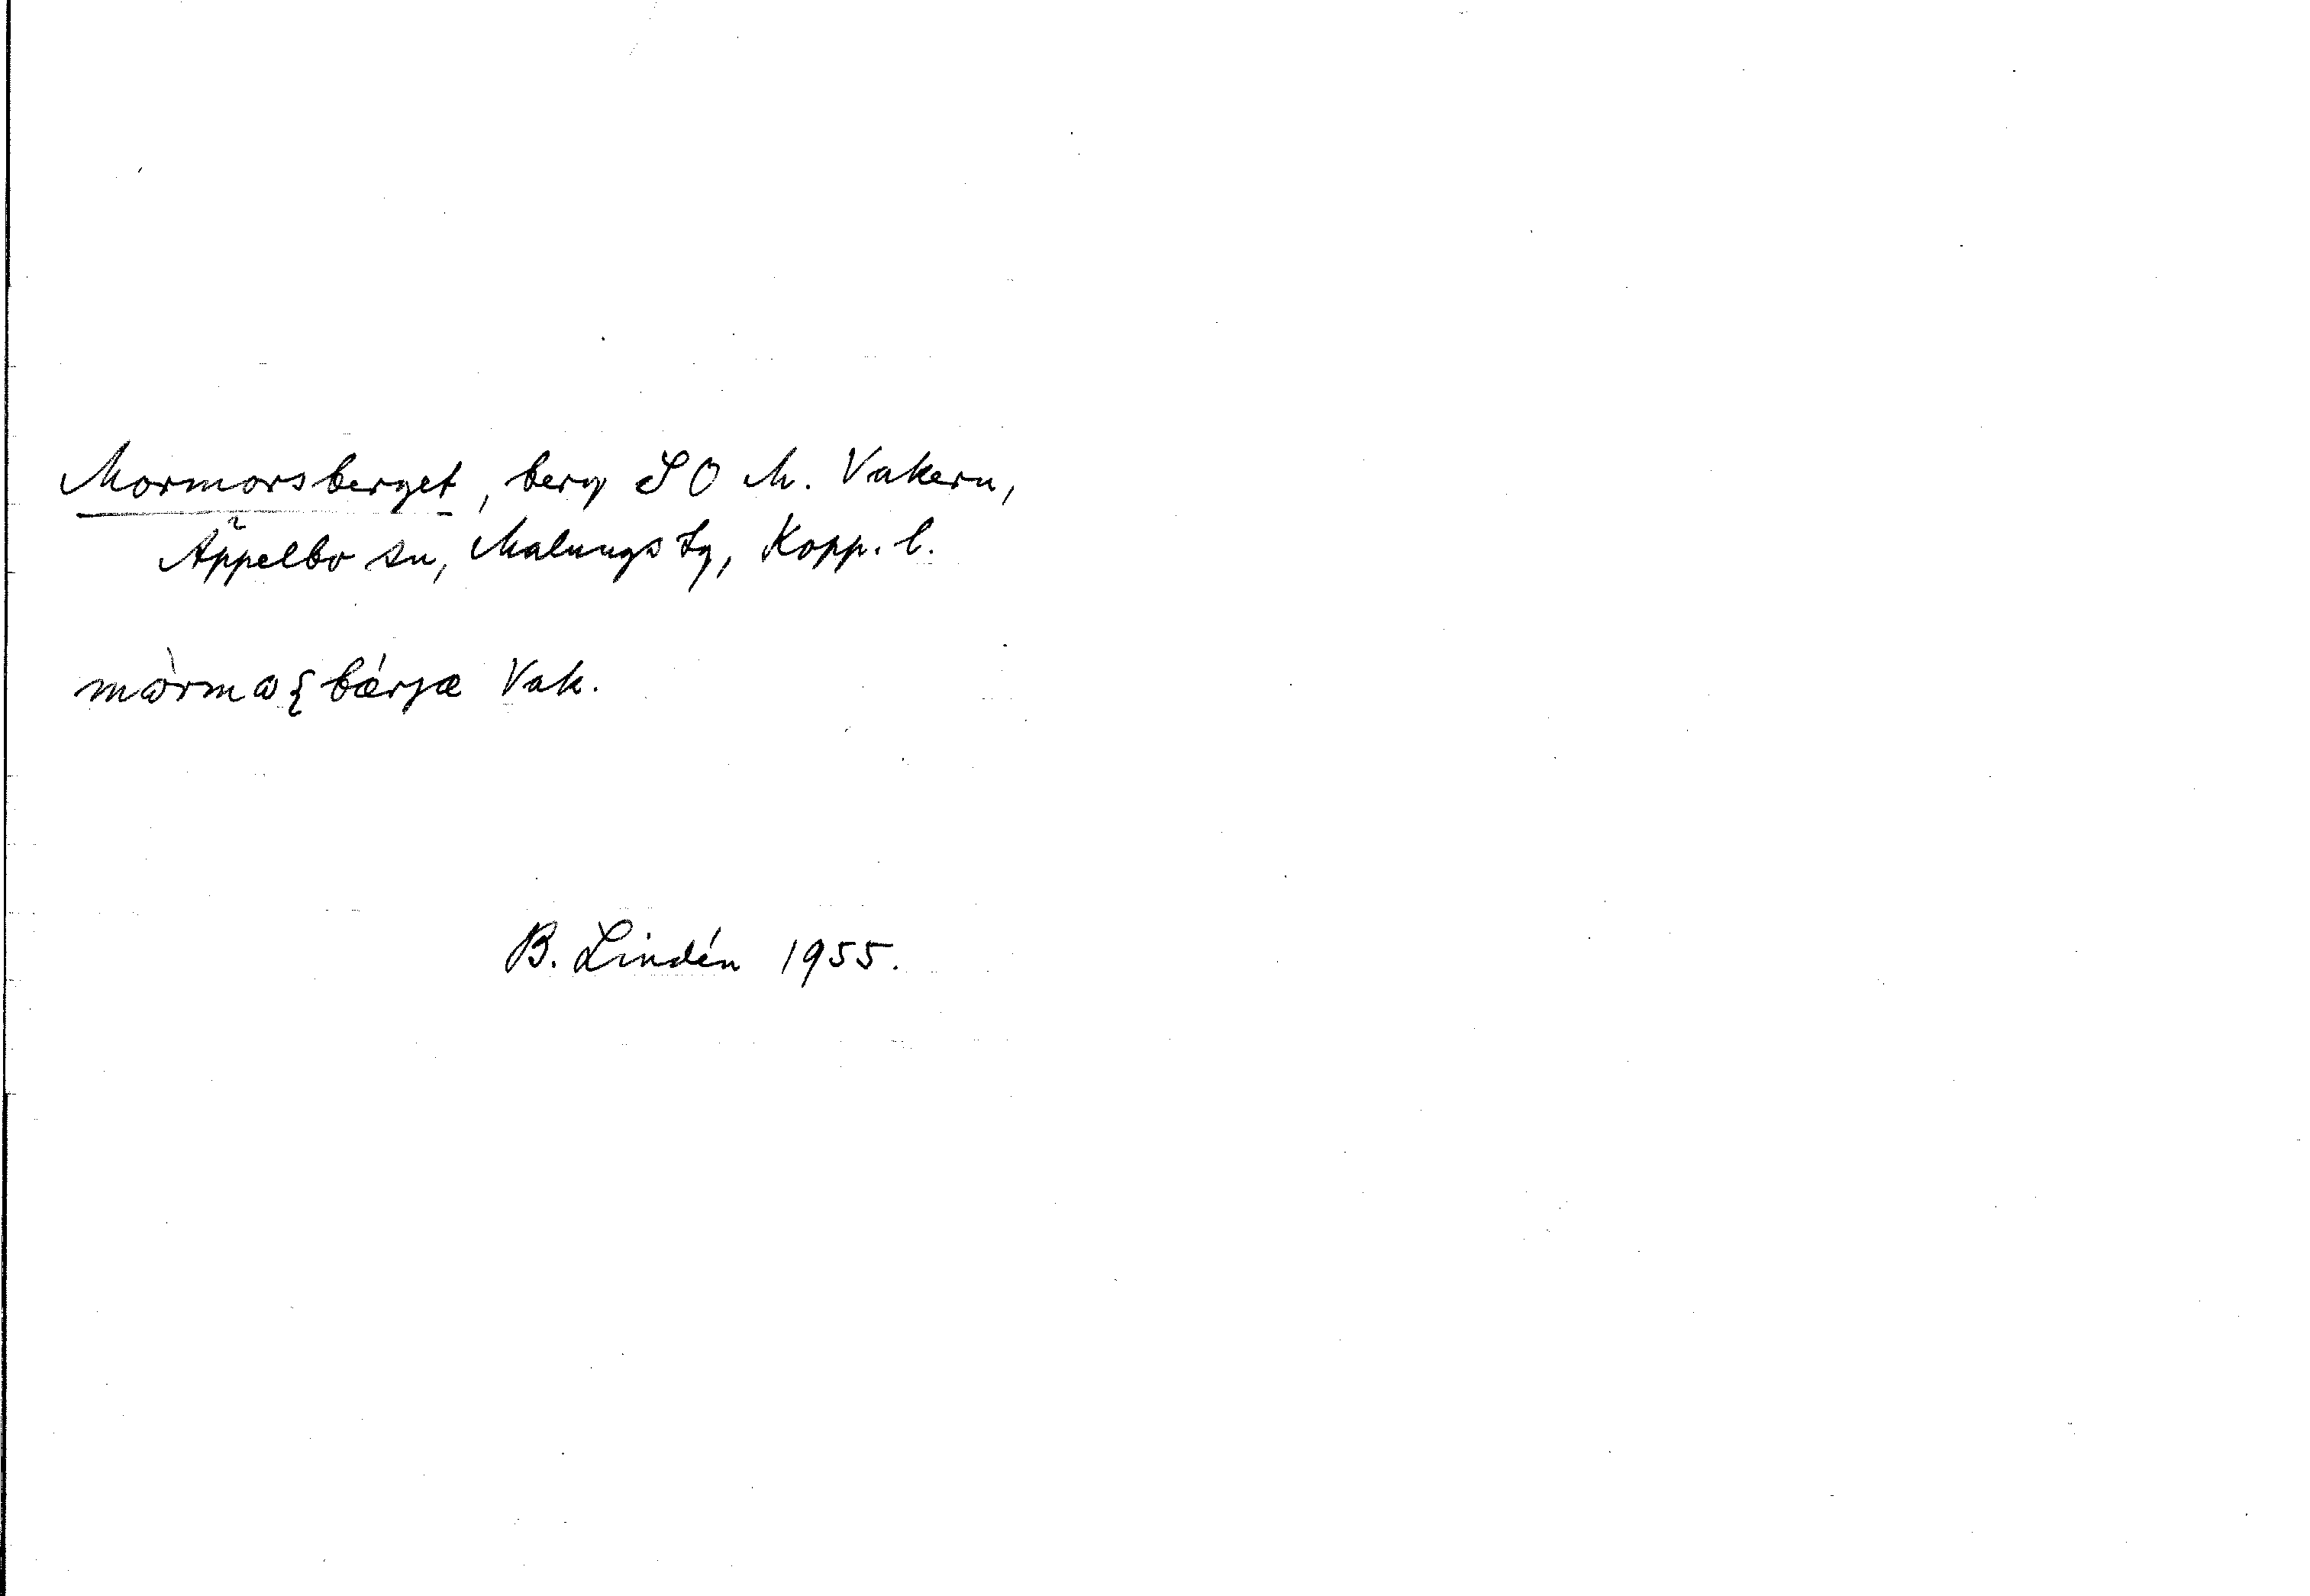 Mormorsberget, berg SO M. Vakern,
Äppelbo sn, Malungs tg, Kopp. l.
mɷ̀rmɷʂbǽrjæ Vak.
B. Lindén 1955.